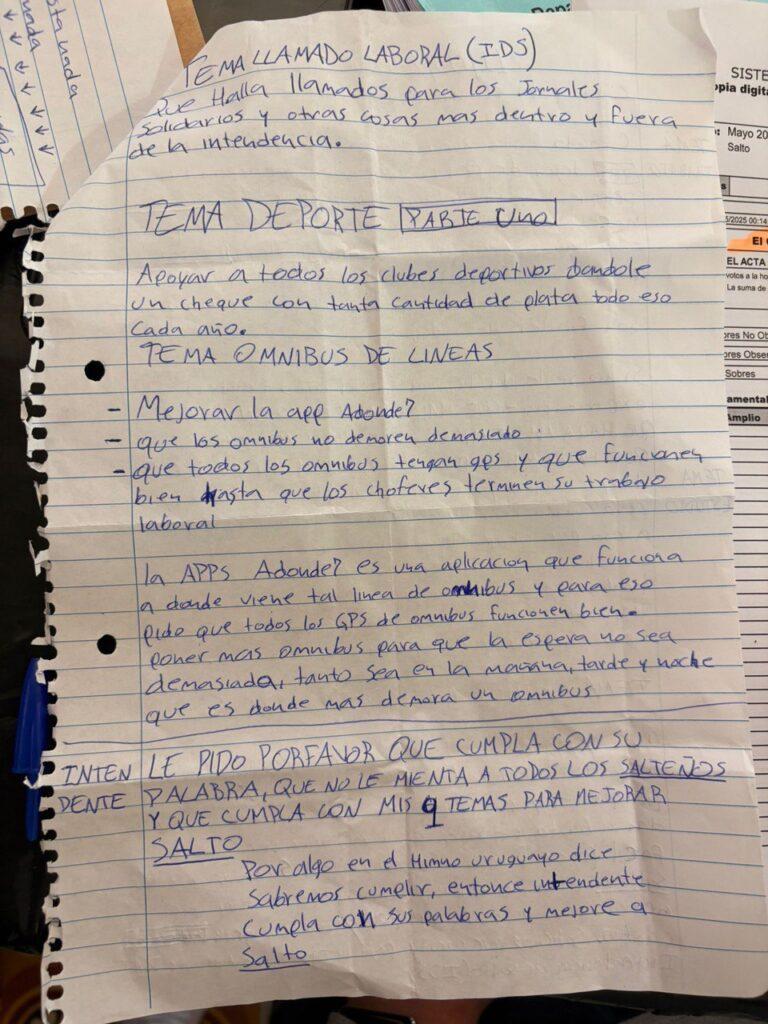 TEMA LLAMADO LABORAL (IDS)
Que Halla llamados para los Jornales
solidarios y otras cosas mas dentro y fuera
de la intendencia.
TEMA DEPORTE PARTE UNO
Apoyar a todos los clubes deportivos dandole
un cheque con tanta cantidad de plata todo eso
cada año.
TEMA OMNIBUS DE LINEAS
- Mejorar la app Adonde?
- que los omnibus no demoren demasiado.
- que todos los omnibus tengan gps y que funcionen
bien hasta que los choferes terminen su trabajo
laboral
la APPS Adonde? es una aplicacion que funciona
a donde viene tal linea de omnibus y para eso
pido que todos los GPS de omnibus funcionen bien.
poner mas omnibus para que la espera no sea
demasiada, tanto sea en la mañana, tarde y noche
que es donde mas demora un omnibus
INTEN
DENTE
LE PIDO PORFAVOR QUE CUMPLA CON SU
PALABRA, QUE NO LE MIENTA A TODOS LOS SALTEÑOS
Y QUE CUMPLA CON MIS 9 TEMAS PARA MEJORAR
SALTO
Por algo en el Himno uruguayo dice
sabremos cumplir, entonce intendente
cumpla con sus palabras y mejore a
Salto
sta nada
nada
SISTE
opia digita
Mayo 20
Salto
5/2025 00:14
El
EL ACTA
votos a la ho
La suma de
ores No Ob
ores Obser
Sobres
amental
Amplio